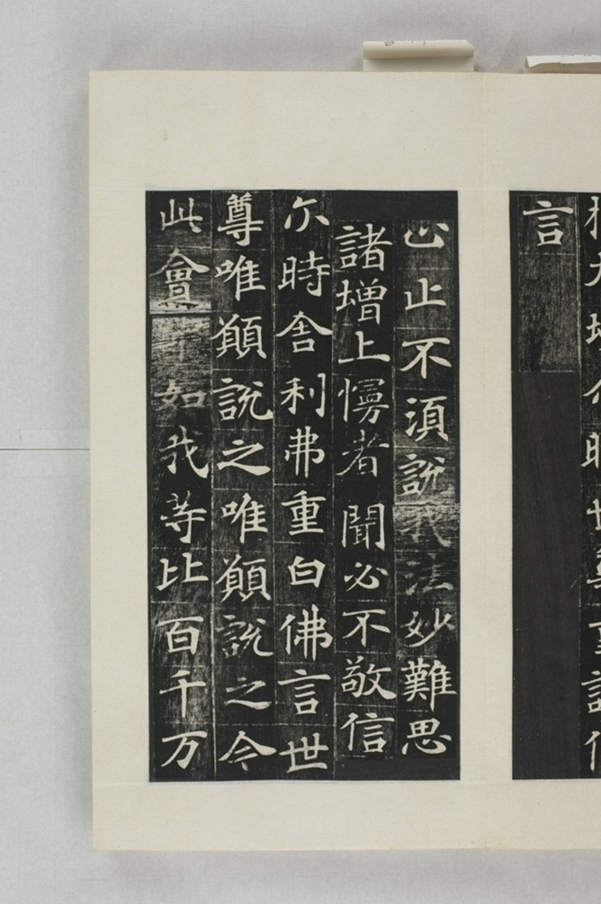 言
止止不須說我法妙難思
諸增上慢者聞必不敬信
尒時舎利弗重白佛言世
尊唯願說之唯願說之今
此會中如我等比百千万